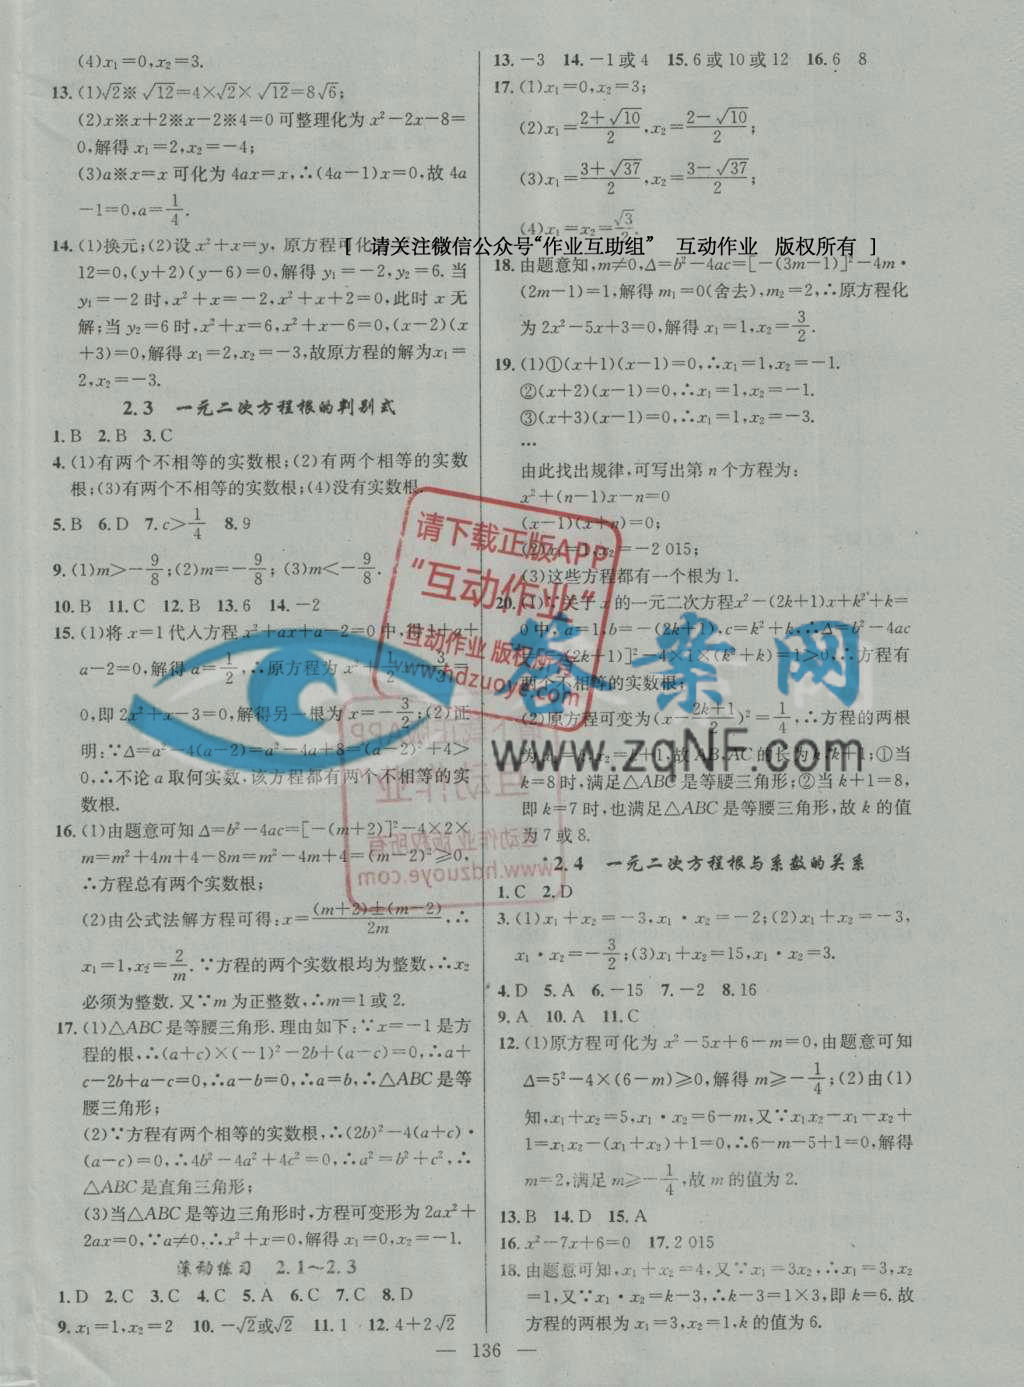 (4)x₁=0,x₂=3.
13. (1)√2※√12=4×√2×√12=8√6;
(2)x※x+2※x-2※4=0可整理化为x²-2x-8=
0,解得x₁=2,x₂=-4;
(3)a※x=x可化为4ax=x,∴(4a-1)x=0,故4a
-1=0,a=1/4.
14. (1)换元;(2)设x²+x=y,原方程可化
12=0,(y+2)(y-6)=0,解得y₁=-2,y₂=6.当
y₁=-2时,x²+x=-2,x²+x+2=0,此时x无
解;当y₂=6时,x²+x=6,x²+x-6=0,(x-2)(x
+3)=0,解得x₁=2,x₂=-3,故原方程的解为x₁=
2,x₂=-3.
2.3 一元二次方程根的判别式
1. B 2. B 3. C
4. (1)有两个不相等的实数根;(2)有两个相等的实数
根;(3)有两个不相等的实数根;(4)没有实数根.
5. B 6. D 7. c>1/4 8. 9
9. (1)m>-9/8;(2)m=-9/8;(3)m<-9/8.
10. B 11. C 12. B 13. 6 14. -2
15. (1)将x=1代入方程x²+ax+a-2=0中,得1+a+
a-2=0,解得a=1/2,∴原方程为x²+1/2x-3/2=
0,即2x²+x-3=0,解得另一根为x=-3/2;(2)证
明:∵Δ=a²-4(a-2)=a²-4a+8=(a-2)²+4>
0,∴不论a取何实数,该方程都有两个不相等的实
数根.
16. (1)由题意可知Δ=b²-4ac=[-(m+2)]²-4×2×
m=m²+4m+4-8m=m²-4m+4=(m-2)²⩾0,
∴方程总有两个实数根;
(2)由公式法解方程可得:x=(m+2)±(m-2)/2m,∴
x₁=1,x₂=2/m.∵方程的两个实数根均为整数,∴x₂
必须为整数.又∵m为正整数,∴m=1或2.
17. (1)△ABC是等腰三角形.理由如下:∵x=-1是方
程的根,∴(a+c)×(-1)²-2b+(a-c)=0,∴a+
c-2b+a-c=0,∴a-b=0,∴a=b,∴△ABC是等
腰三角形;
(2)∵方程有两个相等的实数根,∴(2b)²-4(a+c)·
(a-c)=0,∴4b²-4a²+4c²=0,∴a²=b²+c²,∴
△ABC是直角三角形;
(3)当△ABC是等边三角形时,方程可变形为2ax²+
2ax=0,∵a≠0,∴x²+x=0,解得x₁=0,x₂=-1.
滚动练习 2.1~2.3
1. D 2. C 3. C 4. C 5. A 6. C 7. C 8. D
9. x₁=1,x₂=2 10. -√2或√2 11. 1 12. 4+2√2
13. -3 14. -1或4 15. 6或10或12 16. 6 8
17. (1)x₁=0,x₂=3;
(2)x₁=2+√10/2,x₂=2-√10/2;
(3)x₁=3+√37/2,x₂=3-√37/2;
(4)x₁=x₂=√3/2.
[ 请关注微信公众号“作业互助组” 互动作业 版权所有 ]
18. 由题意知,m≠0,Δ=b²-4ac=[-(3m-1)]²-4m·
(2m-1)=1,解得m₁=0(舍去),m₂=2,∴原方程化
为2x²-5x+3=0,解得x₁=1,x₂=3/2.
19. (1)①(x+1)(x-1)=0,∴x₁=1,x₂=-1.
②(x+2)(x-1)=0,∴x₁=1,x₂=-2.
③(x+3)(x-1)=0,∴x₁=1,x₂=-3.
…
由此找出规律,可写出第n个方程为:
x²+(n-1)x-n=0
(x-1)(x+n)=0;
(2)x₁=1,x₂=-2 015;
(3)这些方程都有一个根为1.
20. (1)∵关于x的一元二次方程x²-(2k+1)x+k²+k=
0中,a=1,b=-(2k+1),c=k²+k,∴Δ=b²-4ac
=[-(2k+1)]²-4×1×(k²+k)=1>0,∴方程有
两个不相等的实数根;
(2)原方程可变为(x-2k+1/2)²=1/4,∴方程的两根
为x₁=k,x₂=k+1,故AB,AC的长为k,k+1,①当
k=8时,满足△ABC是等腰三角形;②当k+1=8,
即k=7时,也满足△ABC是等腰三角形,故k的值
为7或8.
2.4 一元二次方程根与系数的关系
1. C 2. D
3. (1)x₁+x₂=-3,x₁·x₂=-2;(2)x₁+x₂=-3,
x₁·x₂=-3/2;(3)x₁+x₂=15,x₁·x₂=3.
4. D 5. A 6. -15 7. -2 8. 16
9. A 10. A 11. C
12. (1)原方程可化为x²-5x+6-m=0,由题意可知
Δ=5²-4×(6-m)⩾0,解得m⩾-1/4;(2)由(1)
知,x₁+x₂=5,x₁·x₂=6-m,又∵x₁x₂-x₁-x₂+
1=x₁x₂-(x₁+x₂)+1=0,∴6-m-5+1=0,解得
m=2,满足m⩾-1/4,故m的值为2.
13. B 14. D 15. A
16. x²-7x+6=0 17. 2 015
18. 由题意可知,x₁+x₂=4,又∵x₁=3x₂,∴x₁=3,x₂
=1,又∵x₁x₂=k-3,∴k-3=1×3,即k=6.故
方程的两根为x₁=3,x₂=1,k的值为6.
— 136 —
请下载正版APP
“互动作业”
互动作业 版权所有
www.hdzuoye.com
答案网
www.zqNF.com
请下载正版APP
互动作业
互动作业 版权所有
www.hdzuoye.com